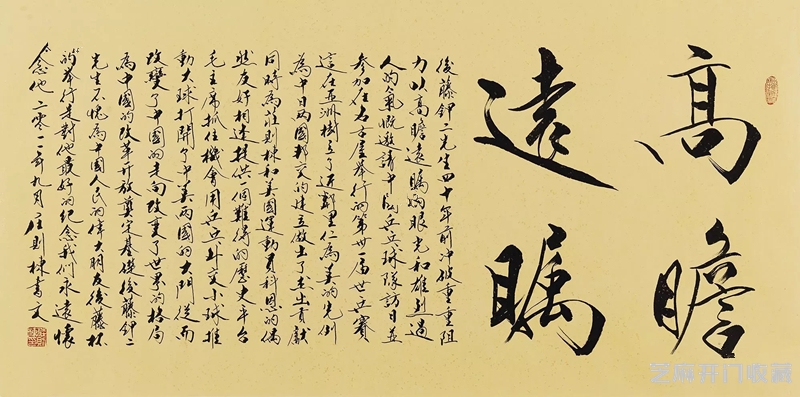 高瞻
遠瞩
後藤鉀二先生四十年前沖破重重阻
力以高瞻遠瞩的眼光和雄烈過
人的氣慨邀請中國乒乓球隊訪日並
参加在名古屋舉行的第卅一届世乒賽
這在亚洲樹立了近鄰里仁為美的先例
為中日两國邦交的建立做出了杰出貢献
同時為莊則棟和美國運動員科恩的偶
然友好相逢提供一個難得的歷史平台
毛主席抓住機會用乒乓外交小球推
動大球打開了中美两國的大門從而
改變了中國的走向改变了世界的格局
為中國的改革开放奠定基礎後藤鉀二
先生不愧為中國人民的偉大朋友後藤杯
的举行是對他最好的纪念我们永遠懷
念他二零一一年九月莊則棟書文
芝麻开门收藏